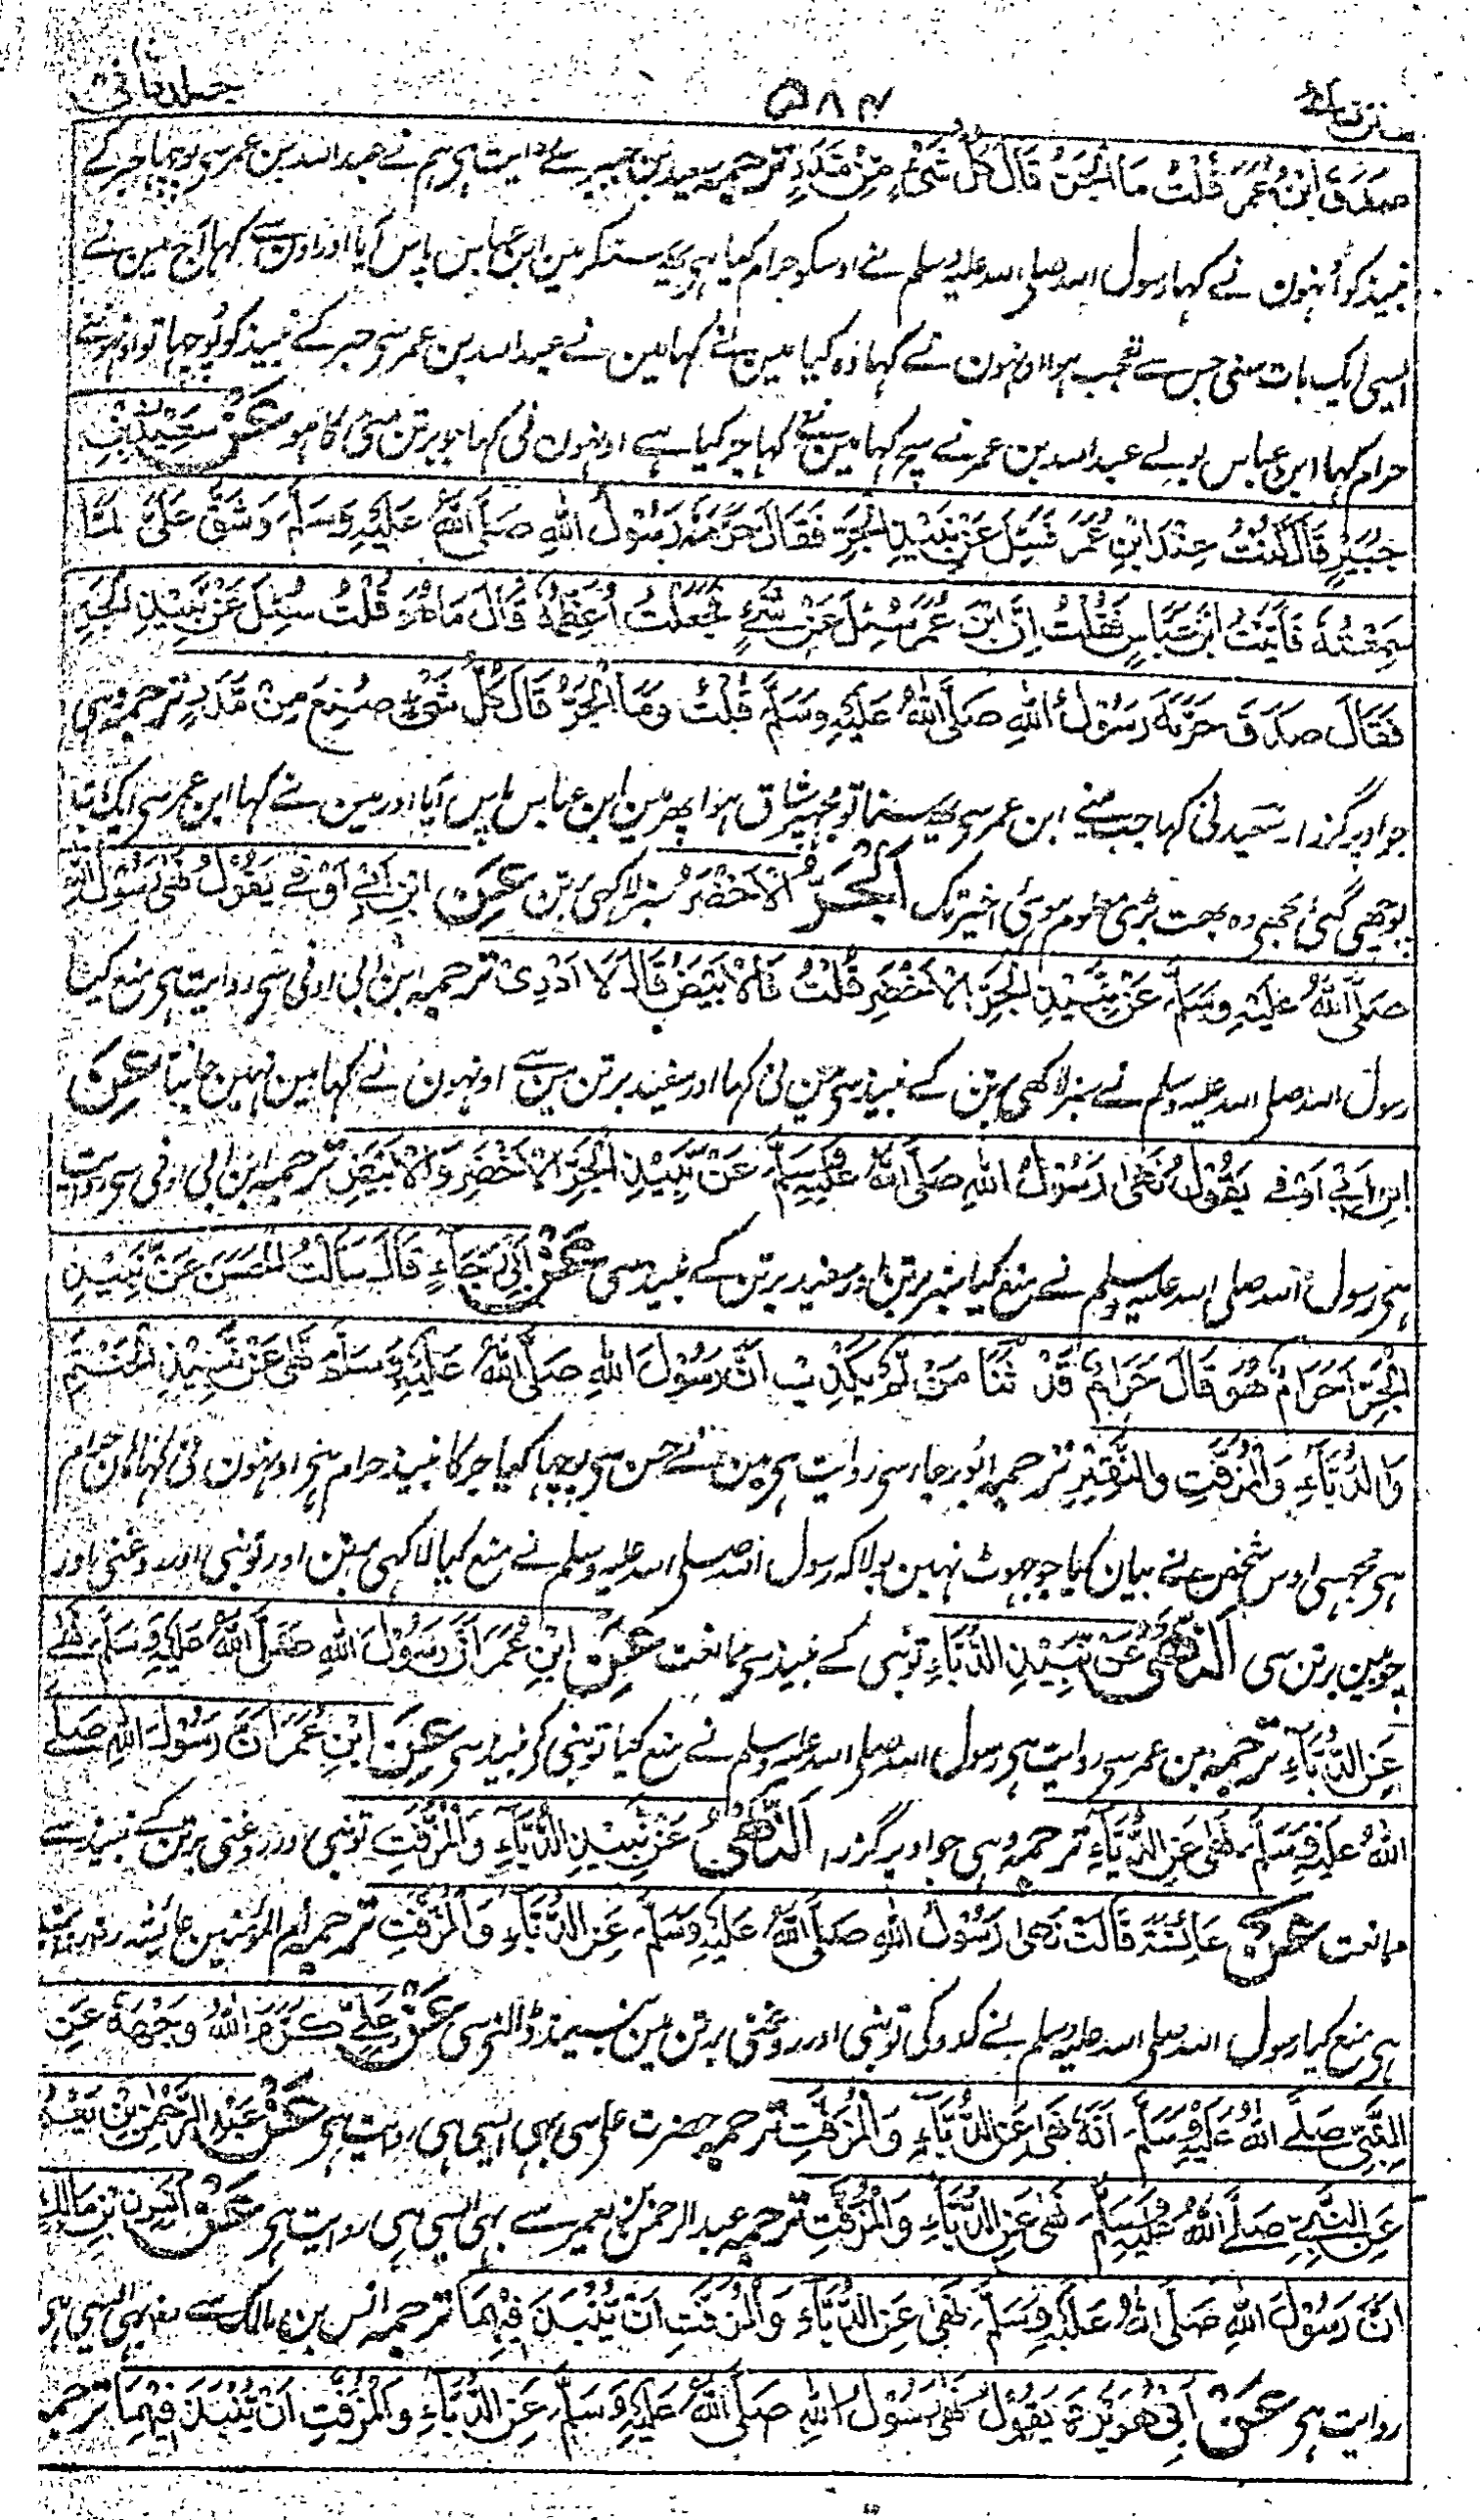 جلد ثانی ۵۸۴
صَدَقَ ابْنُ عُمَرَ قُلْتُ مَا الْجَرُّ قَالَ كُلُّ شَيْءٍ مِّنْ مَّدَرٍ ترجمہ سعید بن جبیر سے روایت ہی ہم نے عبداللہ بن عمر سی پوچہا جر کے
نبیذ کو اُنہون نے کہا رسول اللہ صلی اللہ علیہ وسلم نے اوسکو حرام کیا ہی یہہ سنکر مین ابن عباس پاس آیا اور اون سے کہا آج مین نے
ایسی ایک بات سنی جس سے تعجب ہوا اونہون نے کہا وہ کیا مین نے کہا مین نے عبداللہ بن عمر سی جر کے نبیذ کو پوچہا تو اونہونے
حرام کہا ابن عباس بولے عبداللہ بن عمر نے سچ کہا مینے کہا جر کیا ہے اونہون نی کہا جو برتن مٹی کا ہو عَنْ سَعِيْدِ بْنِ
جُبَيْرٍ قَالَ كُنْتُ عِنْدَ ابْنِ عُمَرَ فَسُئِلَ عَنْ نَّبِيْذِ الْجَرِّ فَقَالَ حَرَّمَهٗ رَسُوْلُ اللّٰهِ صَلَّى اللّٰهُ عَلَيْهِ وَسَلَّمَ وَشَقَّ عَلَيَّ لَمَّا
سَمِعْتُهٗ فَاَتَيْتُ ابْنَ عَبَّاسٍ فَقُلْتُ اِنَّ ابْنَ عُمَرَ سُئِلَ عَنْ شَيْءٍ فَجَعَلْتُ اُعَظِّمُهٗ قَالَ مَا هُوَ قُلْتُ سُئِلَ عَنْ نَّبِيْذِ الْجَرِّ
فَقَالَ صَدَقَ حَرَّمَهٗ رَسُوْلُ اللّٰهِ صَلَّى اللّٰهُ عَلَيْهِ وَسَلَّمَ قُلْتُ وَمَا الْجَرُّ قَالَ كُلُّ شَيْءٍ صُنِعَ مِنْ مَّدَرٍ ترجمہ وہی
جو اوپر گزرا۔ سعید نی کہا جب مینے ابن عمر سی یہہ سنا تو مجہپر شاق ہوا پھر مین ابن عباس پاس آیا اور مین نے کہا ابن عمر سی ایک بات
پوچہی گئی مجہی وہ بہت بڑی معلوم ہوئی اخیر تک اَلْجَرُّ الْاَخْضَرُ سبز لاکہی برتن عَنِ ابْنِ اَبِيْ اَوْفٰى يَقُوْلُ نَهٰى رَسُوْلُ اللّٰهِ
صَلَّى اللّٰهُ عَلَيْهِ وَسَلَّمَ عَنْ نَّبِيْذِ الْجَرِّ الْاَخْضَرِ قُلْتُ فَالْاَبْيَضُ قَالَ لَا اَدْرِيْ ترجمہ ابن ابی اوفی سی روایت ہی منع کیا
رسول اللہ صلی اللہ علیہ وسلم نے سبز لاکھی برتن کے نبیذ سی مین نی کہا اور سفید برتن مین سے اونہون نے کہا مین نہین جانتا عَنِ
ابْنِ اَبِيْ اَوْفٰى يَقُوْلُ نَهٰى رَسُوْلُ اللّٰهِ صَلَّى اللّٰهُ عَلَيْهِ وَسَلَّمَ عَنْ نَّبِيْذِ الْجَرِّ الْاَخْضَرِ وَالْاَبْيَضِ ترجمہ ابن ابی اوفی سی روایت
ہی رسول اللہ صلی اللہ علیہ وسلم نے منع کیا سبز برتن اور سفید برتن کے نبیذ سی عَنْ اَبِيْ رَجَاءٍ قَالَ سَاَلْتُ الْحَسَنَ عَنْ نَّبِيْذِ
الْجَرِّ اَحَرَامٌ هُوَ قَالَ حَرَامٌ قَدْ ثَنَا مَنْ لَّمْ يَكْذِبْ اَنَّ رَسُوْلَ اللّٰهِ صَلَّى اللّٰهُ عَلَيْهِ وَسَلَّمَ نَهٰى عَنْ نَّبِيْذِ الْحَنْتَمِ
وَالدُّبَّاءِ وَالْمُزَفَّتِ وَالنَّقِيْرِ ترجمہ ابورجاء سی روایت ہی مین نے حسن سی پوچہا کیا جر کا نبیذ حرام ہی اونہون نی کہا ہان حرام
ہی مجہسی اوس شخص نے بیان کیا جو جہوٹ نہین بولا کہ رسول اللہ صلی اللہ علیہ وسلم نے منع کیا لاکہی برتن اور تونبی اور روغنی اور
چوبین برتن سی اَلنَّهْيُ عَنْ نَّبِيْذِ الدُّبَّاءِ تونبی کے نبیذ سی ممانعت عَنِ ابْنِ عُمَرَ اَنَّ رَسُوْلَ اللّٰهِ صَلَّى اللّٰهُ عَلَيْهِ وَسَلَّمَ نَهٰى
عَنِ الدُّبَّاءِ ترجمہ بن عمر سی روایت ہی رسول اللہ صلی اللہ علیہ وسلم نے منع کیا تونبی کی نبیذ سی عَنِ ابْنِ عُمَرَ اَنَّ رَسُوْلَ اللّٰهِ صَلَّى
اللّٰهُ عَلَيْهِ وَسَلَّمَ نَهٰى عَنِ الدُّبَّاءِ ترجمہ وہی جو اوپر گزرا اَلنَّهْيُ عَنْ نَّبِيْذِ الدُّبَّاءِ وَالْمُزَفَّتِ تونبی اور روغنی برتن کے نبیذ سے
مانعت عَنْ عَائِشَةَ قَالَتْ نَهٰى رَسُوْلُ اللّٰهِ صَلَّى اللّٰهُ عَلَيْهِ وَسَلَّمَ عَنِ الدُّبَّاءِ وَالْمُزَفَّتِ ترجمہ ام المومنین عایشہ روایت
ہی منع کیا رسول اللہ صلی اللہ علیہ وسلم نے کدو کی تونبی اور روغنی برتن مین نبیذ ڈالنی سی عَنْ عَلِيٍّ كَرَّمَ اللّٰهُ وَجْهَهٗ عَنِ
النَّبِيِّ صَلَّى اللّٰهُ عَلَيْهِ وَسَلَّمَ اَنَّهٗ نَهٰى عَنِ الدُّبَّاءِ وَالْمُزَفَّتِ ترجمہ حضرت علی سی بہی ایسی ہی روایت ہی عَنْ عَبْدِ الرَّحْمٰنِ بْنِ يَعْمُرَ
عَنِ النَّبِيِّ صَلَّى اللّٰهُ عَلَيْهِ وَسَلَّمَ نَهٰى عَنِ الدُّبَّاءِ وَالْمُزَفَّتِ ترجمہ عبد الرحمن بن یعمر سے بہی ایسی ہی روایت ہی عَنْ اَنَسِ بْنِ مَالِكٍ
اَنَّ رَسُوْلَ اللّٰهِ صَلَّى اللّٰهُ عَلَيْهِ وَسَلَّمَ نَهٰى عَنِ الدُّبَّاءِ وَالْمُزَفَّتِ اَنْ يُّنْبَذَ فِيْهِمَا ترجمہ انس بن مالک سے بہی ایسی ہی
روایت ہی عَنْ اَبِيْ هُرَيْرَةَ يَقُوْلُ نَهٰى رَسُوْلُ اللّٰهِ صَلَّى اللّٰهُ عَلَيْهِ وَسَلَّمَ عَنِ الدُّبَّاءِ وَالْمُزَفَّتِ اَنْ يُّنْبَذَ فِيْهِمَا ترجمہ